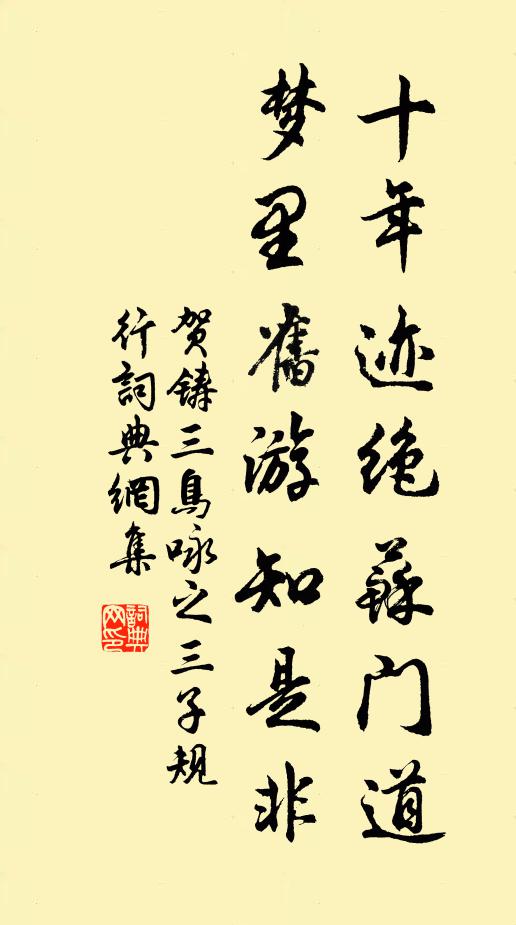 十年迹绝苏门道
梦里旧游知是非
贺铸三鳥咏之三子规
行詞典網集
詞典
网印